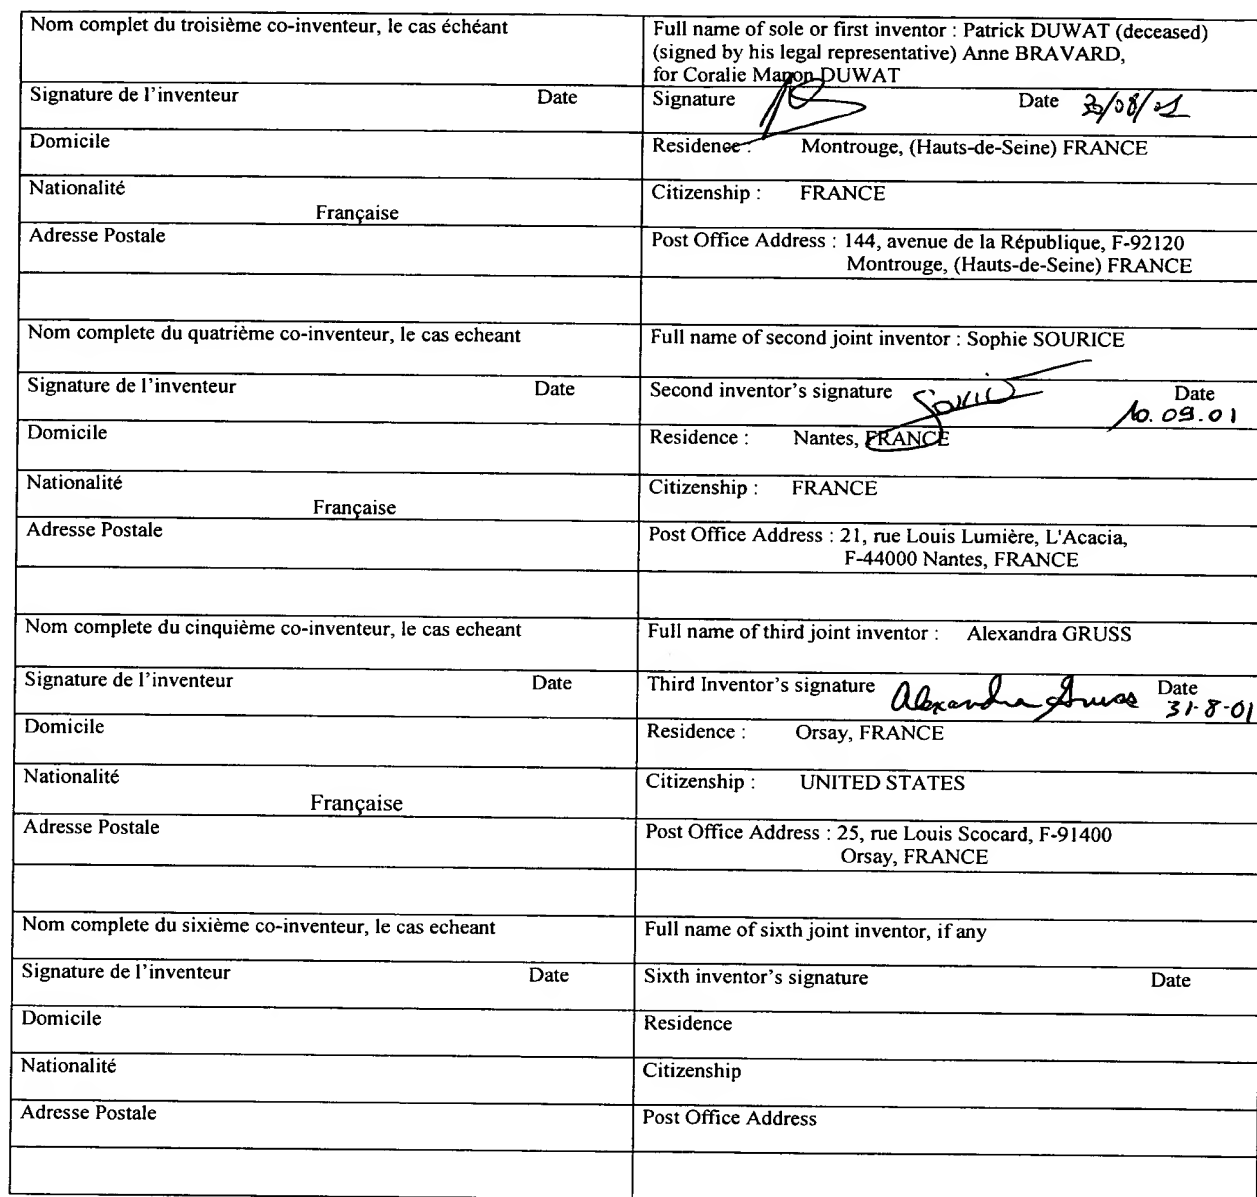 Nom complet du troisième co-inventeur, le cas échéant
Full name of sole or first inventor : Patrick DUWAT (deceased)
(signed by his legal representative) Anne BRAVARD,
for Coralie Manon DUWAT
Signature de l'inventeur Date
Signature Date
Domicile
Residence : Montrouge, (Hauts-de-Seine) FRANCE
Nationalité
Française
Citizenship : FRANCE
Adresse Postale
Post Office Address : 144, avenue de la République, F-92120
Montrouge, (Hauts-de-Seine) FRANCE
Nom complete du quatrième co-inventeur, le cas echeant
Full name of second joint inventor : Sophie SOURICE
Signature de l'inventeur Date
Second inventor's signature Date
10.09.01
Domicile
Residence : Nantes, FRANCE
Nationalité
Française
Citizenship : FRANCE
Adresse Postale
Post Office Address : 21, rue Louis Lumière, L'Acacia,
F-44000 Nantes, FRANCE
Nom complete du cinquième co-inventeur, le cas echeant
Full name of third joint inventor : Alexandra GRUSS
Signature de l'inventeur Date
Third Inventor's signature Alexandra Gruss Date
31-8-01
Domicile
Residence : Orsay, FRANCE
Nationalité
Française
Citizenship : UNITED STATES
Adresse Postale
Post Office Address : 25, rue Louis Scocard, F-91400
Orsay, FRANCE
Nom complete du sixième co-inventeur, le cas echeant
Full name of sixth joint inventor, if any
Signature de l'inventeur Date
Sixth inventor's signature Date
Domicile
Residence
Nationalité
Citizenship
Adresse Postale
Post Office Address